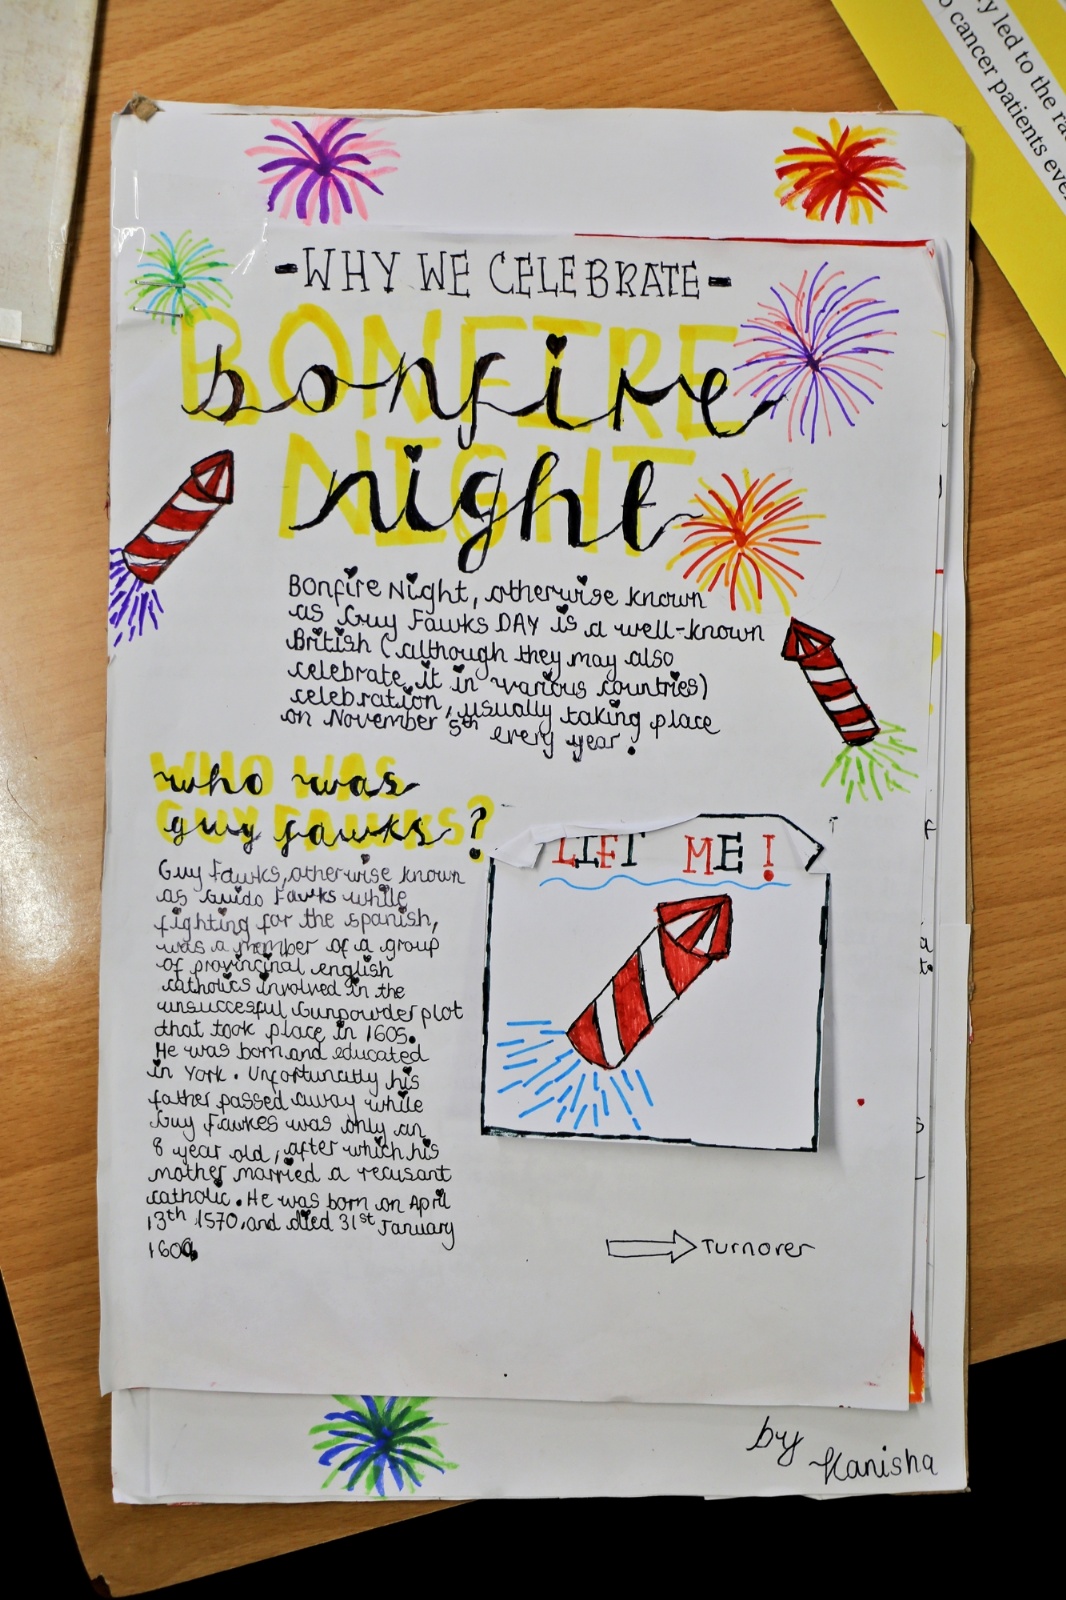 y led to the ra
o cancer patients eve
-WHY WE CELEBRATE-
BONFIRE
bonfire
NIGHT
night
Bonfire Night, otherwise known
as Guy Fawks DAY is a well-known
British (although they may also
celebrate it in various countries)
celebration, usually taking place
on November 5th every year.
WHO WAS
who was
GUY FAWKS?
guy fawks?
Guy Fawks, otherwise known
as Guido Fawks while
fighting for the spanish,
was a member of a group
of provincinal english
catholics involved in the
unsuccesful Gunpowder plot
that took place in 1605.
He was born and educated
in York. Unfortunatly his
father passed away while
Guy Fawkes was only an
8 year old, after which his
mother married a recusant
catholic. He was born on April
13th 1570, and died 31st January
LIFT ME!
Turnover
by
Kanisha